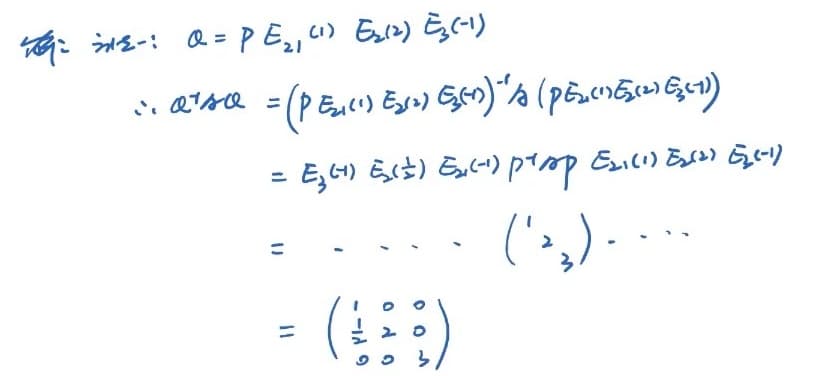 解: 方法一: Q = P E₂₁(1) E₂(2) E₃(-1)
∴ Q⁻¹AQ = (P E₂₁(1) E₂(2) E₃(-1))⁻¹ A (P E₂₁(1) E₂(2) E₃(-1))
= E₃(-1) E₂(1/2) E₂₁(-1) P⁻¹AP E₂₁(1) E₂(2) E₃(-1)
= · · · · (1 2 3) · · · ·
= (1 0 0
1/2 2 0
0 0 3)